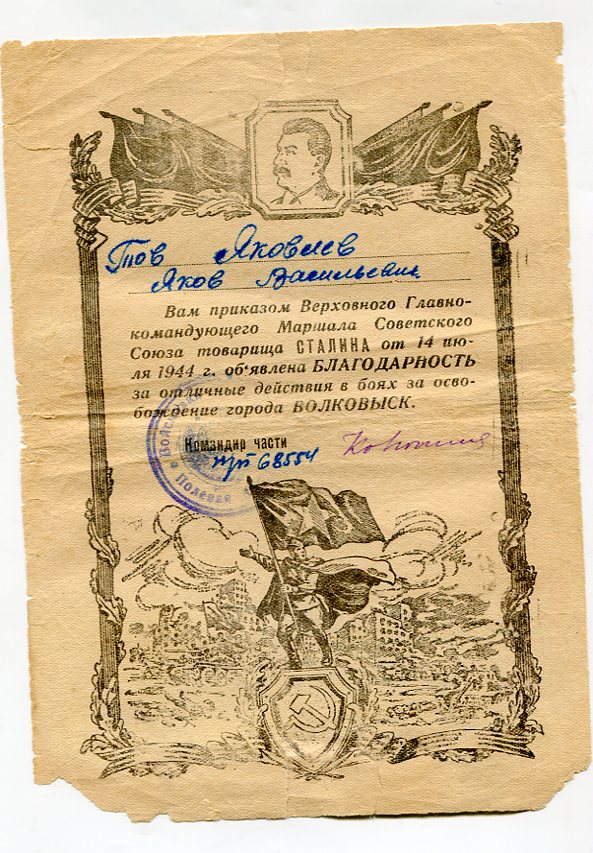 Тов Яковлев
Яков Васильевич
Вам приказом Верховного Главно-
командующего Маршала Советского
Союза товарища СТАЛИНА от 14 ию-
ля 1944 г. об'явлена БЛАГОДАРНОСТЬ
за отличные действия в боях за осво-
бождение города ВОЛКОВЫСК.
Командир части
пп 68554
Полевая